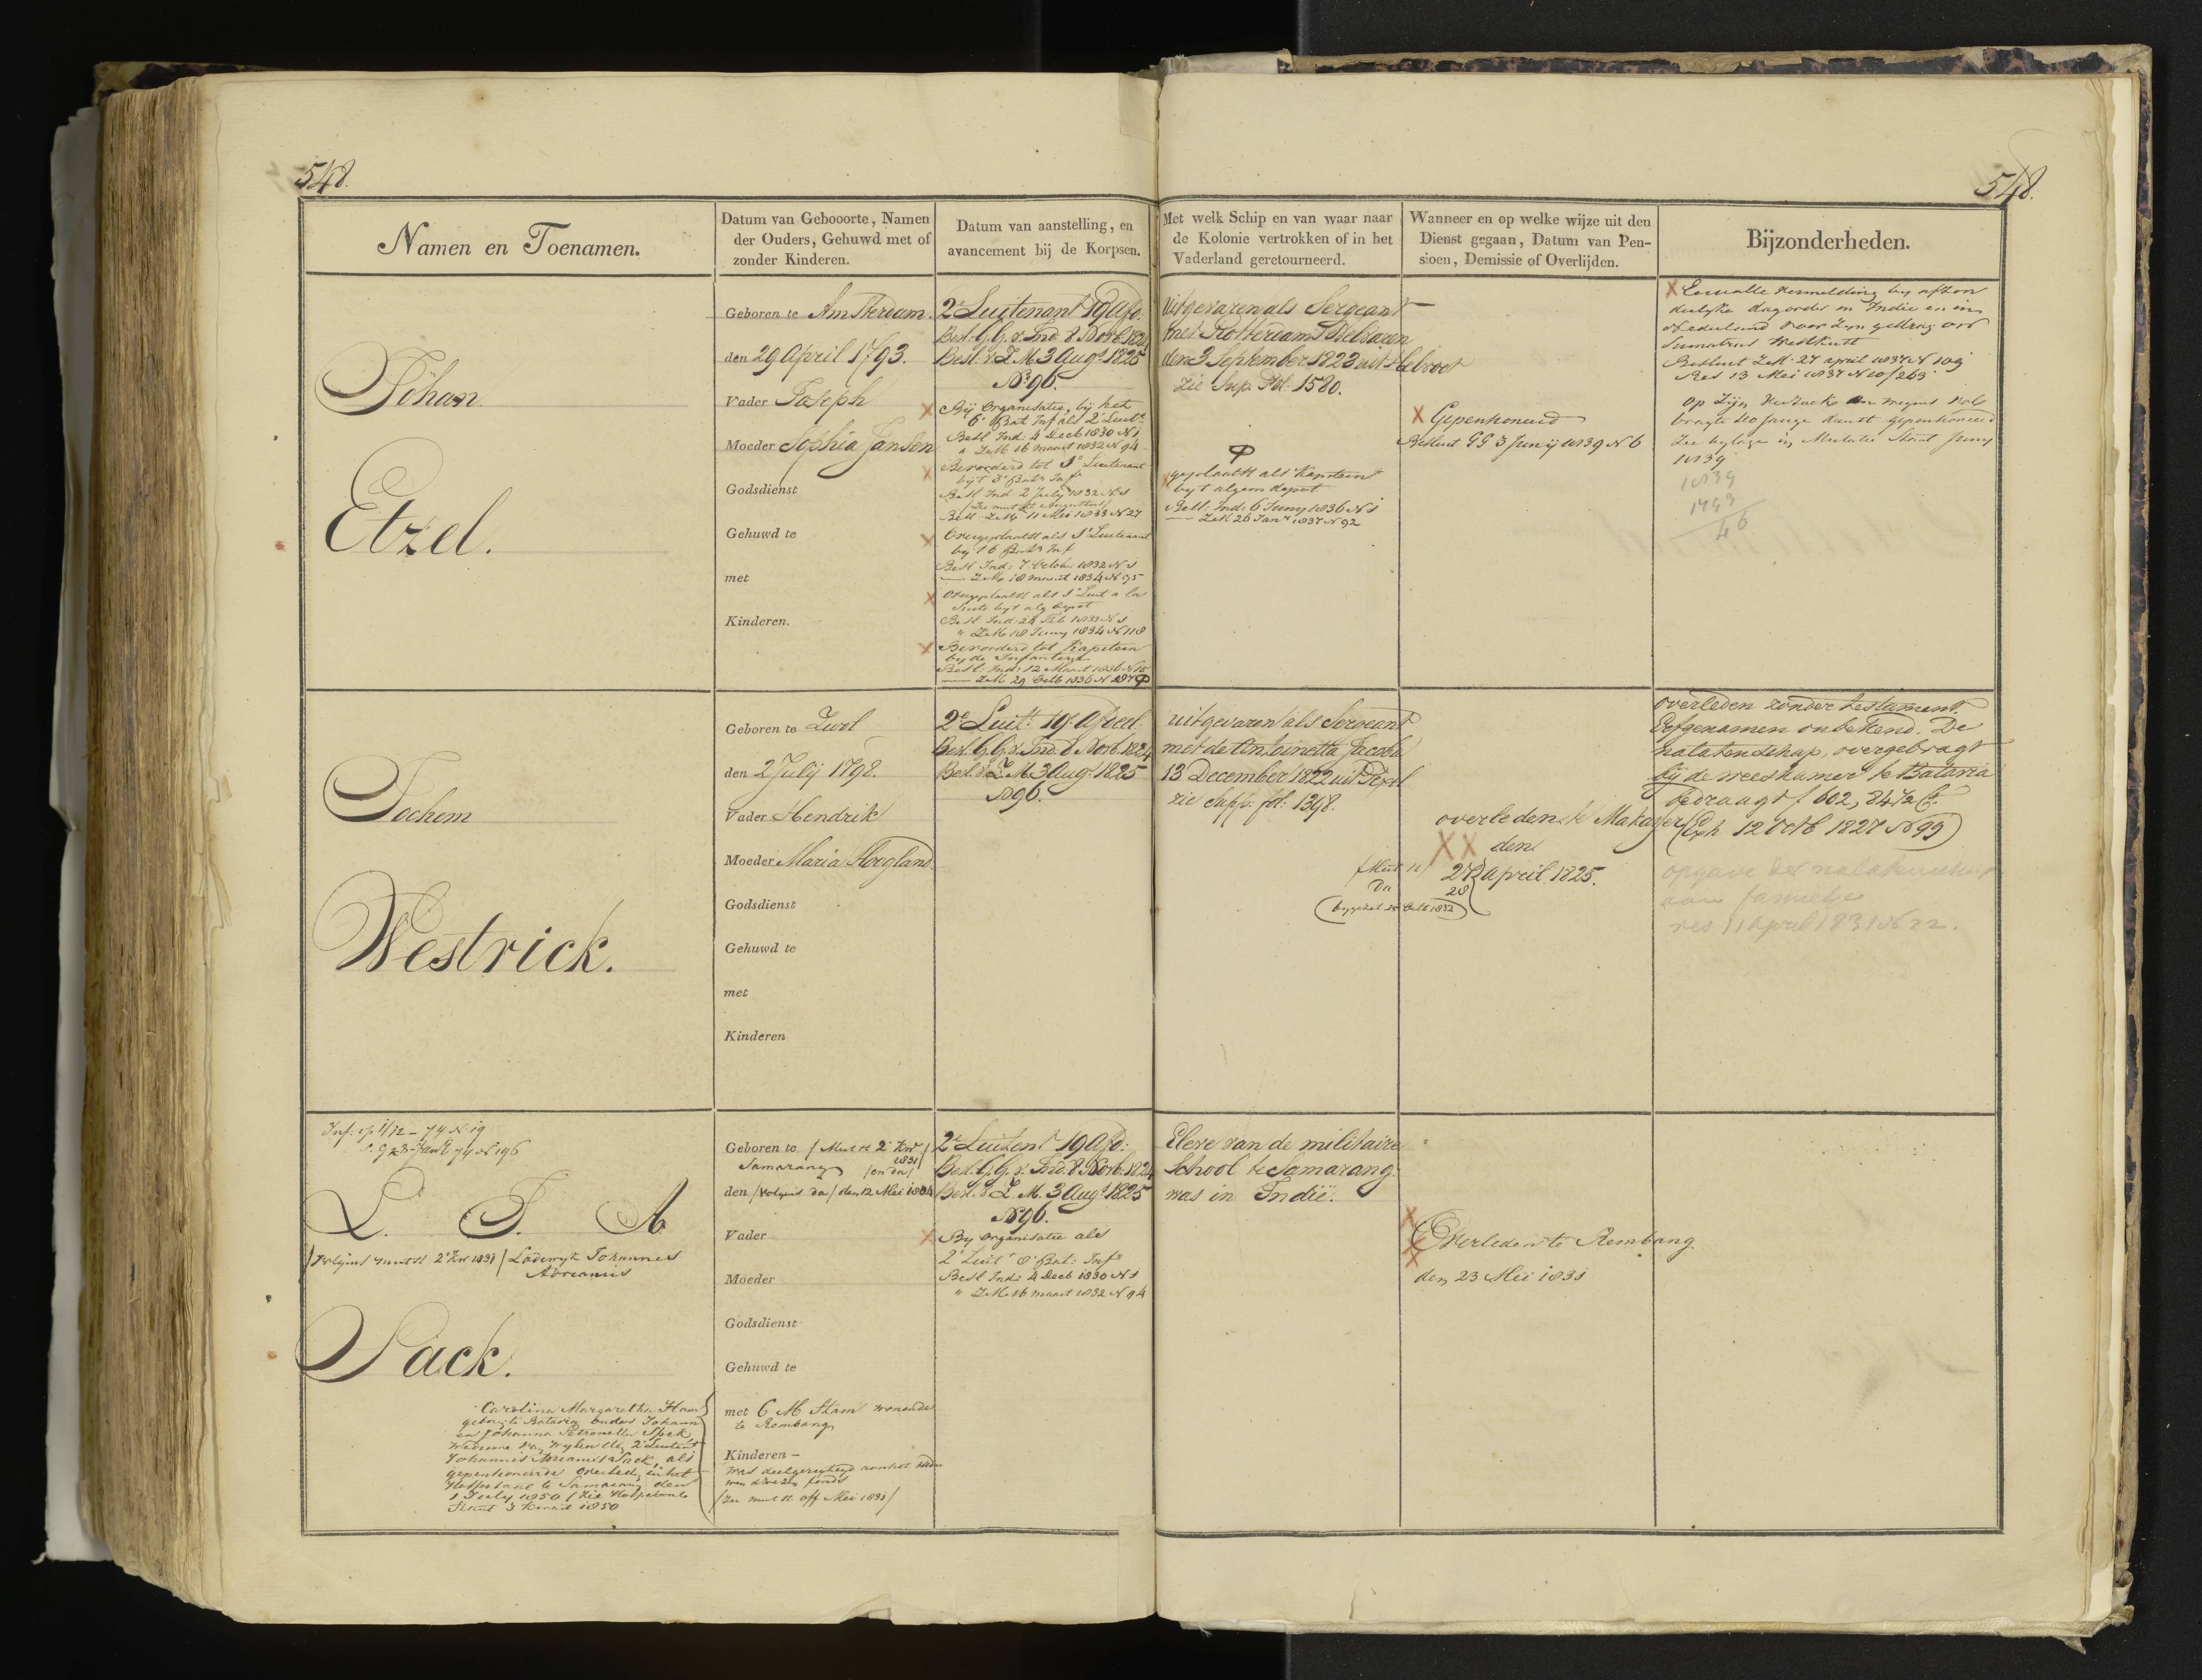 548.
548.
Namen en Toenamen.
Datum van Gebooorte, Namen
der Ouders, Gehuwd met of
zonder Kinderen.
Datum van aanstelling, en
avancement bij de Korpsen.
Met welk Schip en van waar naar
de Kolonie vertrokken of in het
Vaderland geretourneerd.
Wanneer en op welke wijze uit den
Dienst gegaan, Datum van Pen-
sioen, Demissie of Overlijden.
Bijzonderheden.
Johan
Etzel.
Geboren te Amsterdam.
den 29 April 1793.
Vader Joseph
Moeder Sophia Jansen
Godsdienst
Gehuwd te
met
Kinderen.
2e Luitenant 19 Afd.
Besl. G.G. v. Ind. 8 Novb. 1824
Besl. v. Z.M. 3 Augt. 1825
No 96.
Bij Organisatie, bij het
6e Bat Inf als 2e Luitt
Besl Ind: 4 Decb 1830 N 1
" ZM 16 maart 1832 N 94
Bevorderd tot 1e Luitenant
Besl Ind. 2 July 1832 N 1
Besl ZM 11 Mei 1833 N 27
Overgeplaatst als 1e Luitenant
Besl Ind: 7 Octob. 1832 N 1
ZM 18 maart 1834 N 95
overgeplaatst als 1e Luit a la
suite by't alg depot
Besl Ind: 24 Feb 1833 N 1
" ZM 18 Juny 1834 N 118
Bevorderd tot Kapitein
by de Infanterie
Besl: Ind: 12 Maart 1836 N 15
ZM 29 Octb 1836 N 87
Uitgevaren als Sergeant
met Rotterdams Welvaren
den 3 September 1823 uit Helvoet
zie Sup. Fol. 1580.
geplaatst als Kapitein
by't algem depot
Besl: Ind: 6 Juny 1836 N 1
ZM 26 Jan 1837 N 92
Gepensioneerd
Besluit GG 3 Junij 1839 N 6
Eervolle vermelding by afzon
derlyke dagorder in Indie en in
Nederland voor zyn gedrag op
Sumatras Westkust
Besluit ZM 27 april 1837 N 109
Res 13 Mei 1837 N 10/263
op zijn verzoek en wegens vol
bragte 20 jarige dienst gepensioneerd
1839
1839
1793
46
Jochem
Westrick.
Geboren te Zwol
den 2 July 1798.
Vader Hendrik
Moeder Maria Hoogland.
Godsdienst
Gehuwd te
met
Kinderen
2e Luitt. 19e Afdeel.
Besl. G.G. v. Ind. 8 Novb. 1824
Besl. v. Z.M. 3 Augt. 1825
No 96.
uitgevaren als Sergeant
met de Antoinetta Jacoba
13 December 1822 uit Texel
zie Supp. fol: 1398.
overleden te Makasser
den
27 april 1825.
28
overleden zonder testament.
Erfgenamen onbekend. De
nalatenschap, overgebragt
bij de weeskamer te Batavia
bedraagt f 602,84½ Ct.
12 Octb 1827 N 99
opgave der nalatenschap
aan familje
res 11 April 1831 N 22.
L. J. A
Lodewyk Johannes
Adrianus
Sack.
Carolina Margaretha Stam
gebor te Batavia ouders Johann
en Johanna Petronella Spek
weduwe van wylen den 2e Luitent
Johannes Adrianus Sack, als
gepensioneerde overleden in het
Hospitaal te Samarang den
1 July 1850
Geboren te
Samarang
den 12 Mei 1804
Vader
Moeder
Godsdienst
Gehuwd te
met C M Stam wonende
te Rembang
Kinderen
2e Luitent 19 Afd:
Besl. G.G. v. Ind. 8 Novb. 1824
Besl. v. Z.M. 3 Augt. 1825
No 96.
By Organisatie als
2e Luitt 8e Bat: Inf
Besl Ind: 4 Decb 1830 N 1
" ZM 16 maart 1832 N 94
Eleve van de militaire
School te Samarang
was in Indië.
Overleden te Rembang
den 23 Mei 1831